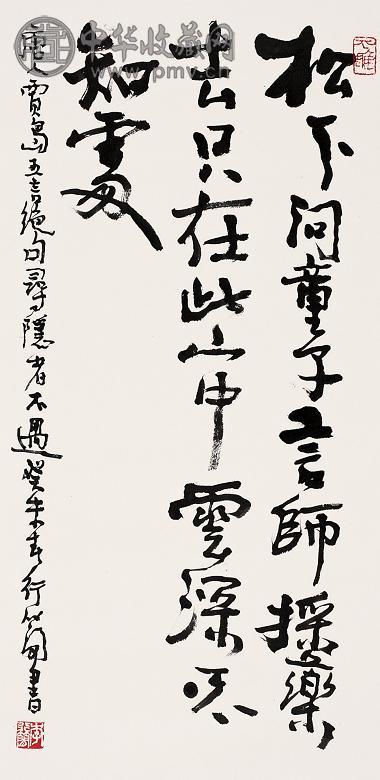 中华收藏网
www.pmv.cn
松下問童子言師採藥
去只在此山中雲深不
知處
唐人賈島五言絕句尋隱者不遇癸未春行簡書